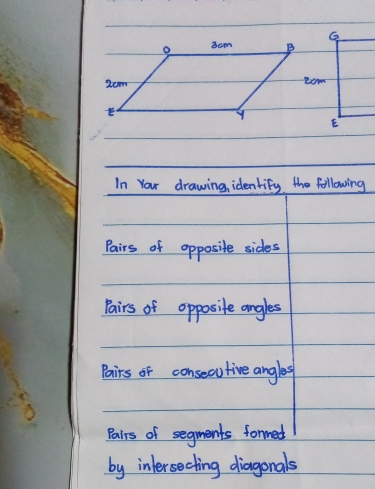 G
O 3cm B
2cm 2cm
E Y E
In Your drawing, identify the following
Pairs of opposite sides
Pairs of opposite angles
Pairs of consecutive angles
Pairs of segments formed
by intersecting diagonals